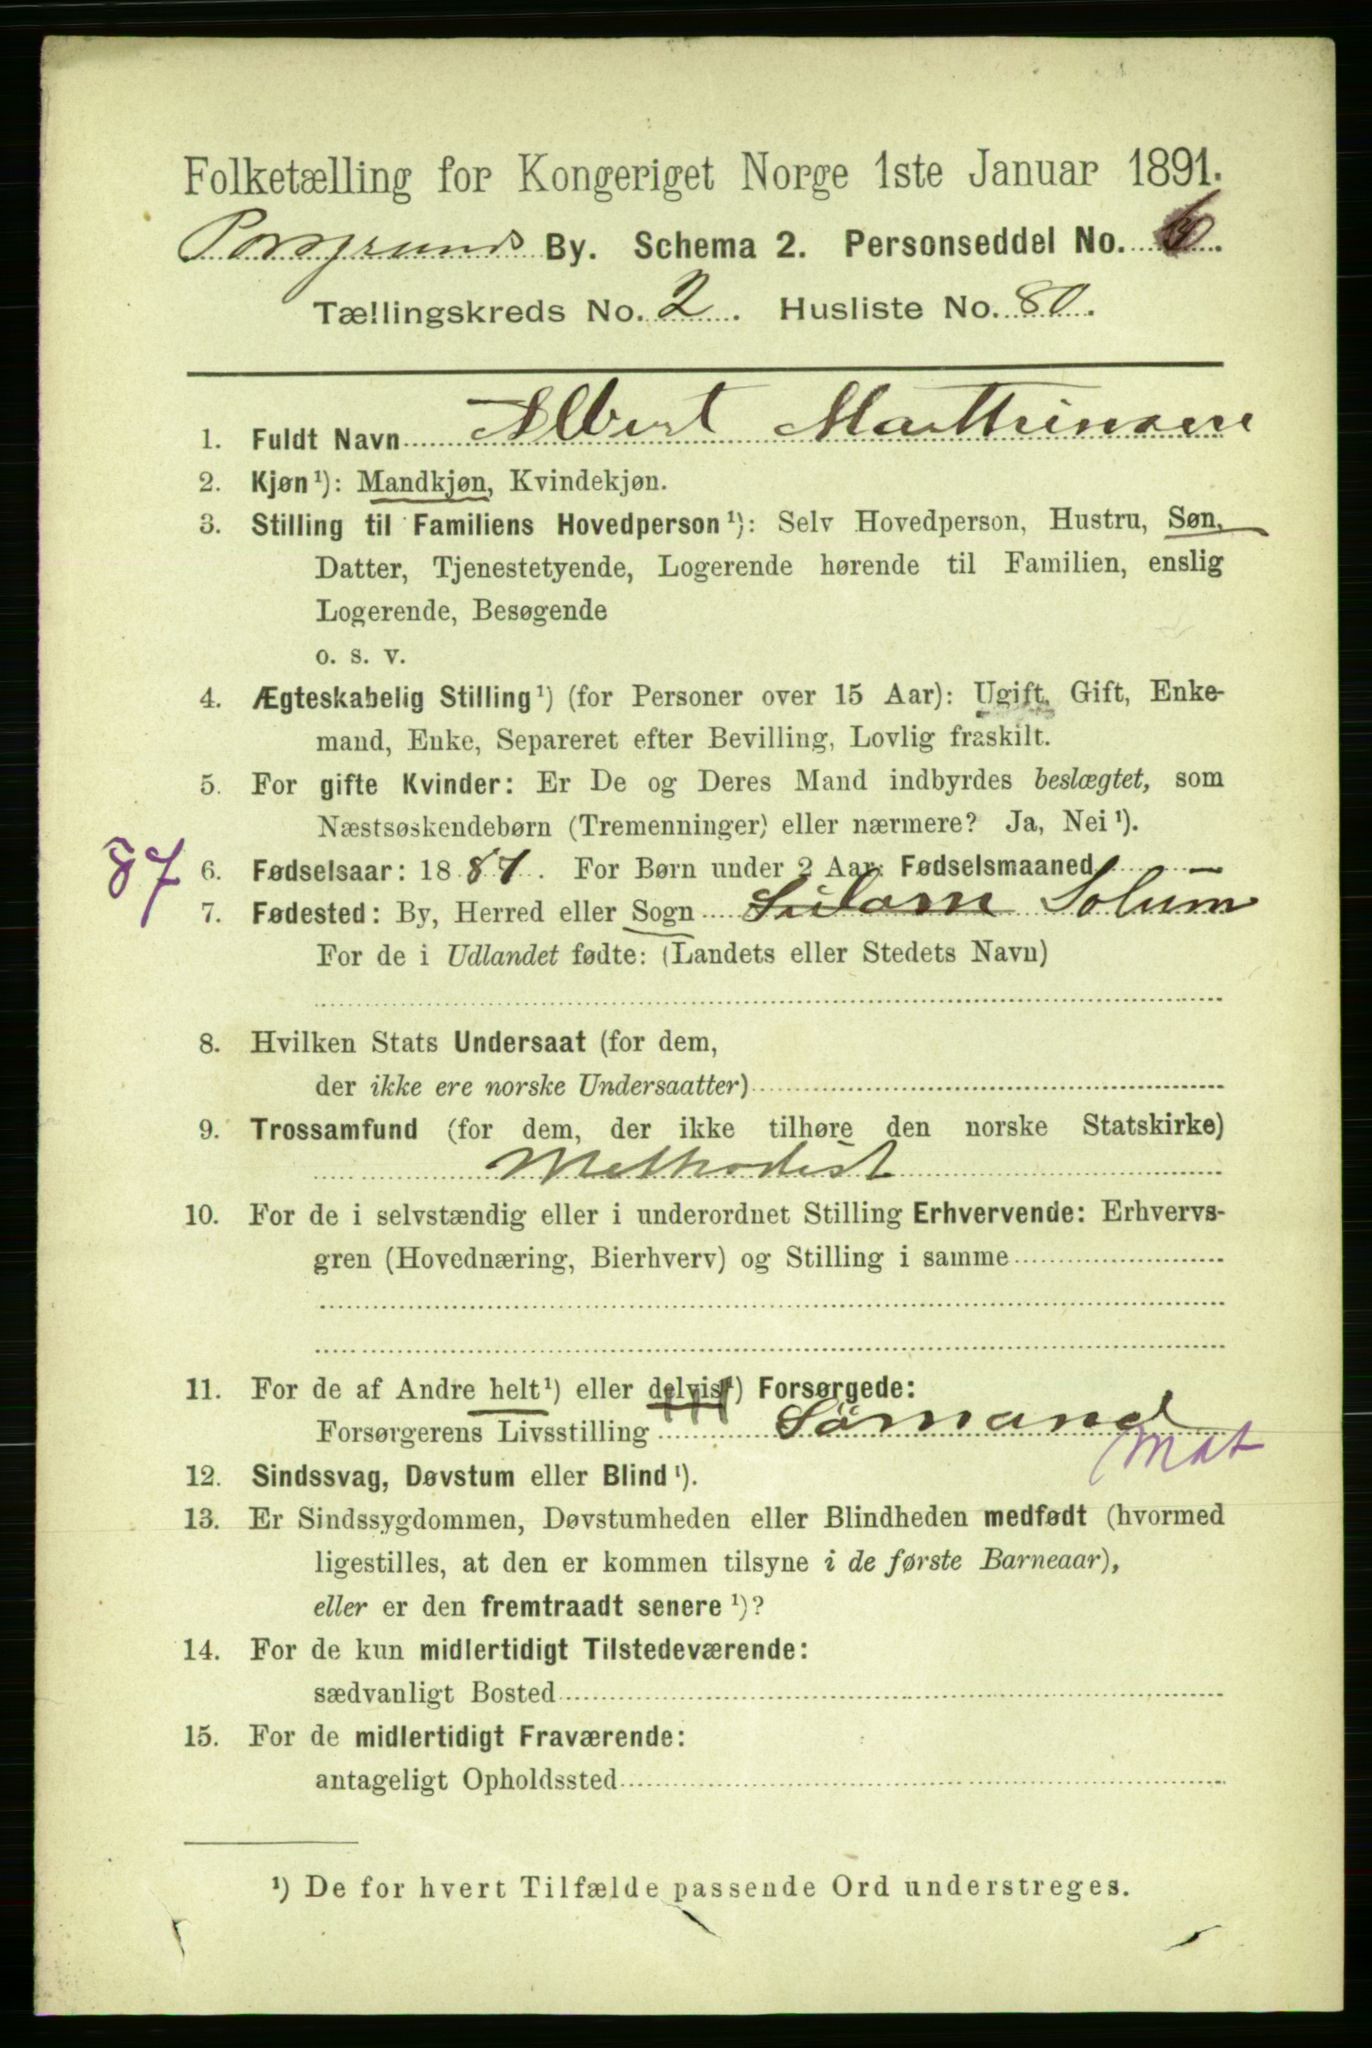 Folketælling for Kongeriget Norge 1ste Januar 1891.
Porsgrunds By. Schema 2. Personseddel No. 6.
Tællingskreds No. 2. Husliste No. 80.
1. Fuldt Navn Albert Marthinsen
2. Kjøn¹): Mandkjøn, Kvindekjøn.
3. Stilling til Familiens Hovedperson¹): Selv Hovedperson, Hustru, Søn,
Datter, Tjenestetyende, Logerende hørende til Familien, enslig
Logerende, Besøgende
o. s. v.
4. Ægteskabelig Stilling¹) (for Personer over 15 Aar): Ugift, Gift, Enke-
mand, Enke, Separeret efter Bevilling, Lovlig fraskilt.
5. For gifte Kvinder: Er De og Deres Mand indbyrdes beslægtet, som
Næstsøskendebørn (Tremenninger) eller nærmere? Ja, Nei¹).
87 6. Fødselsaar: 1887. For Børn under 2 Aar: Fødselsmaaned
7. Fødested: By, Herred eller Sogn Solum
For de i Udlandet fødte: (Landets eller Stedets Navn)
8. Hvilken Stats Undersaat (for dem,
der ikke ere norske Undersaatter)
9. Trossamfund (for dem, der ikke tilhøre den norske Statskirke)
Methodist
10. For de i selvstændig eller i underordnet Stilling Erhvervende: Erhvervs-
gren (Hovednæring, Bierhverv) og Stilling i samme
11. For de af Andre helt¹) eller delvist¹) Forsørgede:
Forsørgerens Livsstilling Sömand
Mat
12. Sindssvag, Døvstum eller Blind¹).
13. Er Sindssygdommen, Døvstumheden eller Blindheden medfødt (hvormed
ligestilles, at den er kommen tilsyne i de første Barneaar),
eller er den fremtraadt senere¹)?
14. For de kun midlertidigt Tilstedeværende:
sædvanligt Bosted
15. For de midlertidigt Fraværende:
antageligt Opholdssted
¹) De for hvert Tilfælde passende Ord understreges.